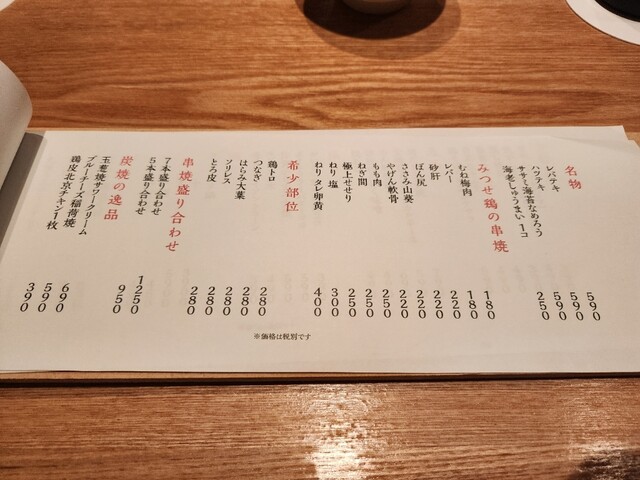 名物
レバテキ 590
ハツテキ 590
ササミ海苔なめろう 590
海老しゅうまい 1コ 250
みつせ鶏の串焼
むね梅肉 180
レバー 180
砂肝 220
ぼん尻 220
ささみ山葵 220
やげん軟骨 220
もも肉 250
ねぎ間 250
極上せせり 250
ねり 塩 300
ねりタレ卵黄 400
希少部位
鶏トロ 280
つなぎ 280
はらみ大葉 280
ソリレス 280
とろ皮 280
串焼盛り合わせ
7本盛り合わせ 1250
5本盛り合わせ 950
炭焼の逸品
玉葱焼サワークリーム 690
ブルーチーズ稲荷焼 590
鶏皮北京チキン1枚 390
※価格は税別です